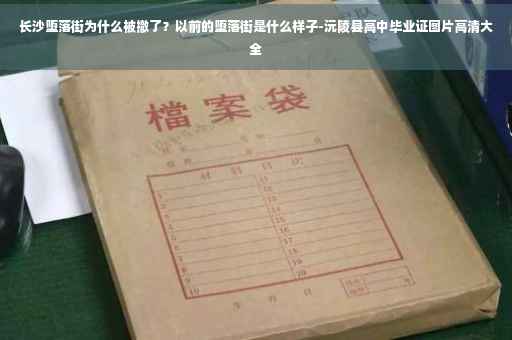 长沙堕落街为什么被撤了？以前的堕落街是什么样子-沅陵县高中毕业证图片高清大
全
檔案袋
材料目次
1 11
2 12
3 13
4 14
5 15
6 16
7 17
8 18
9 19
10 20
年 月 日